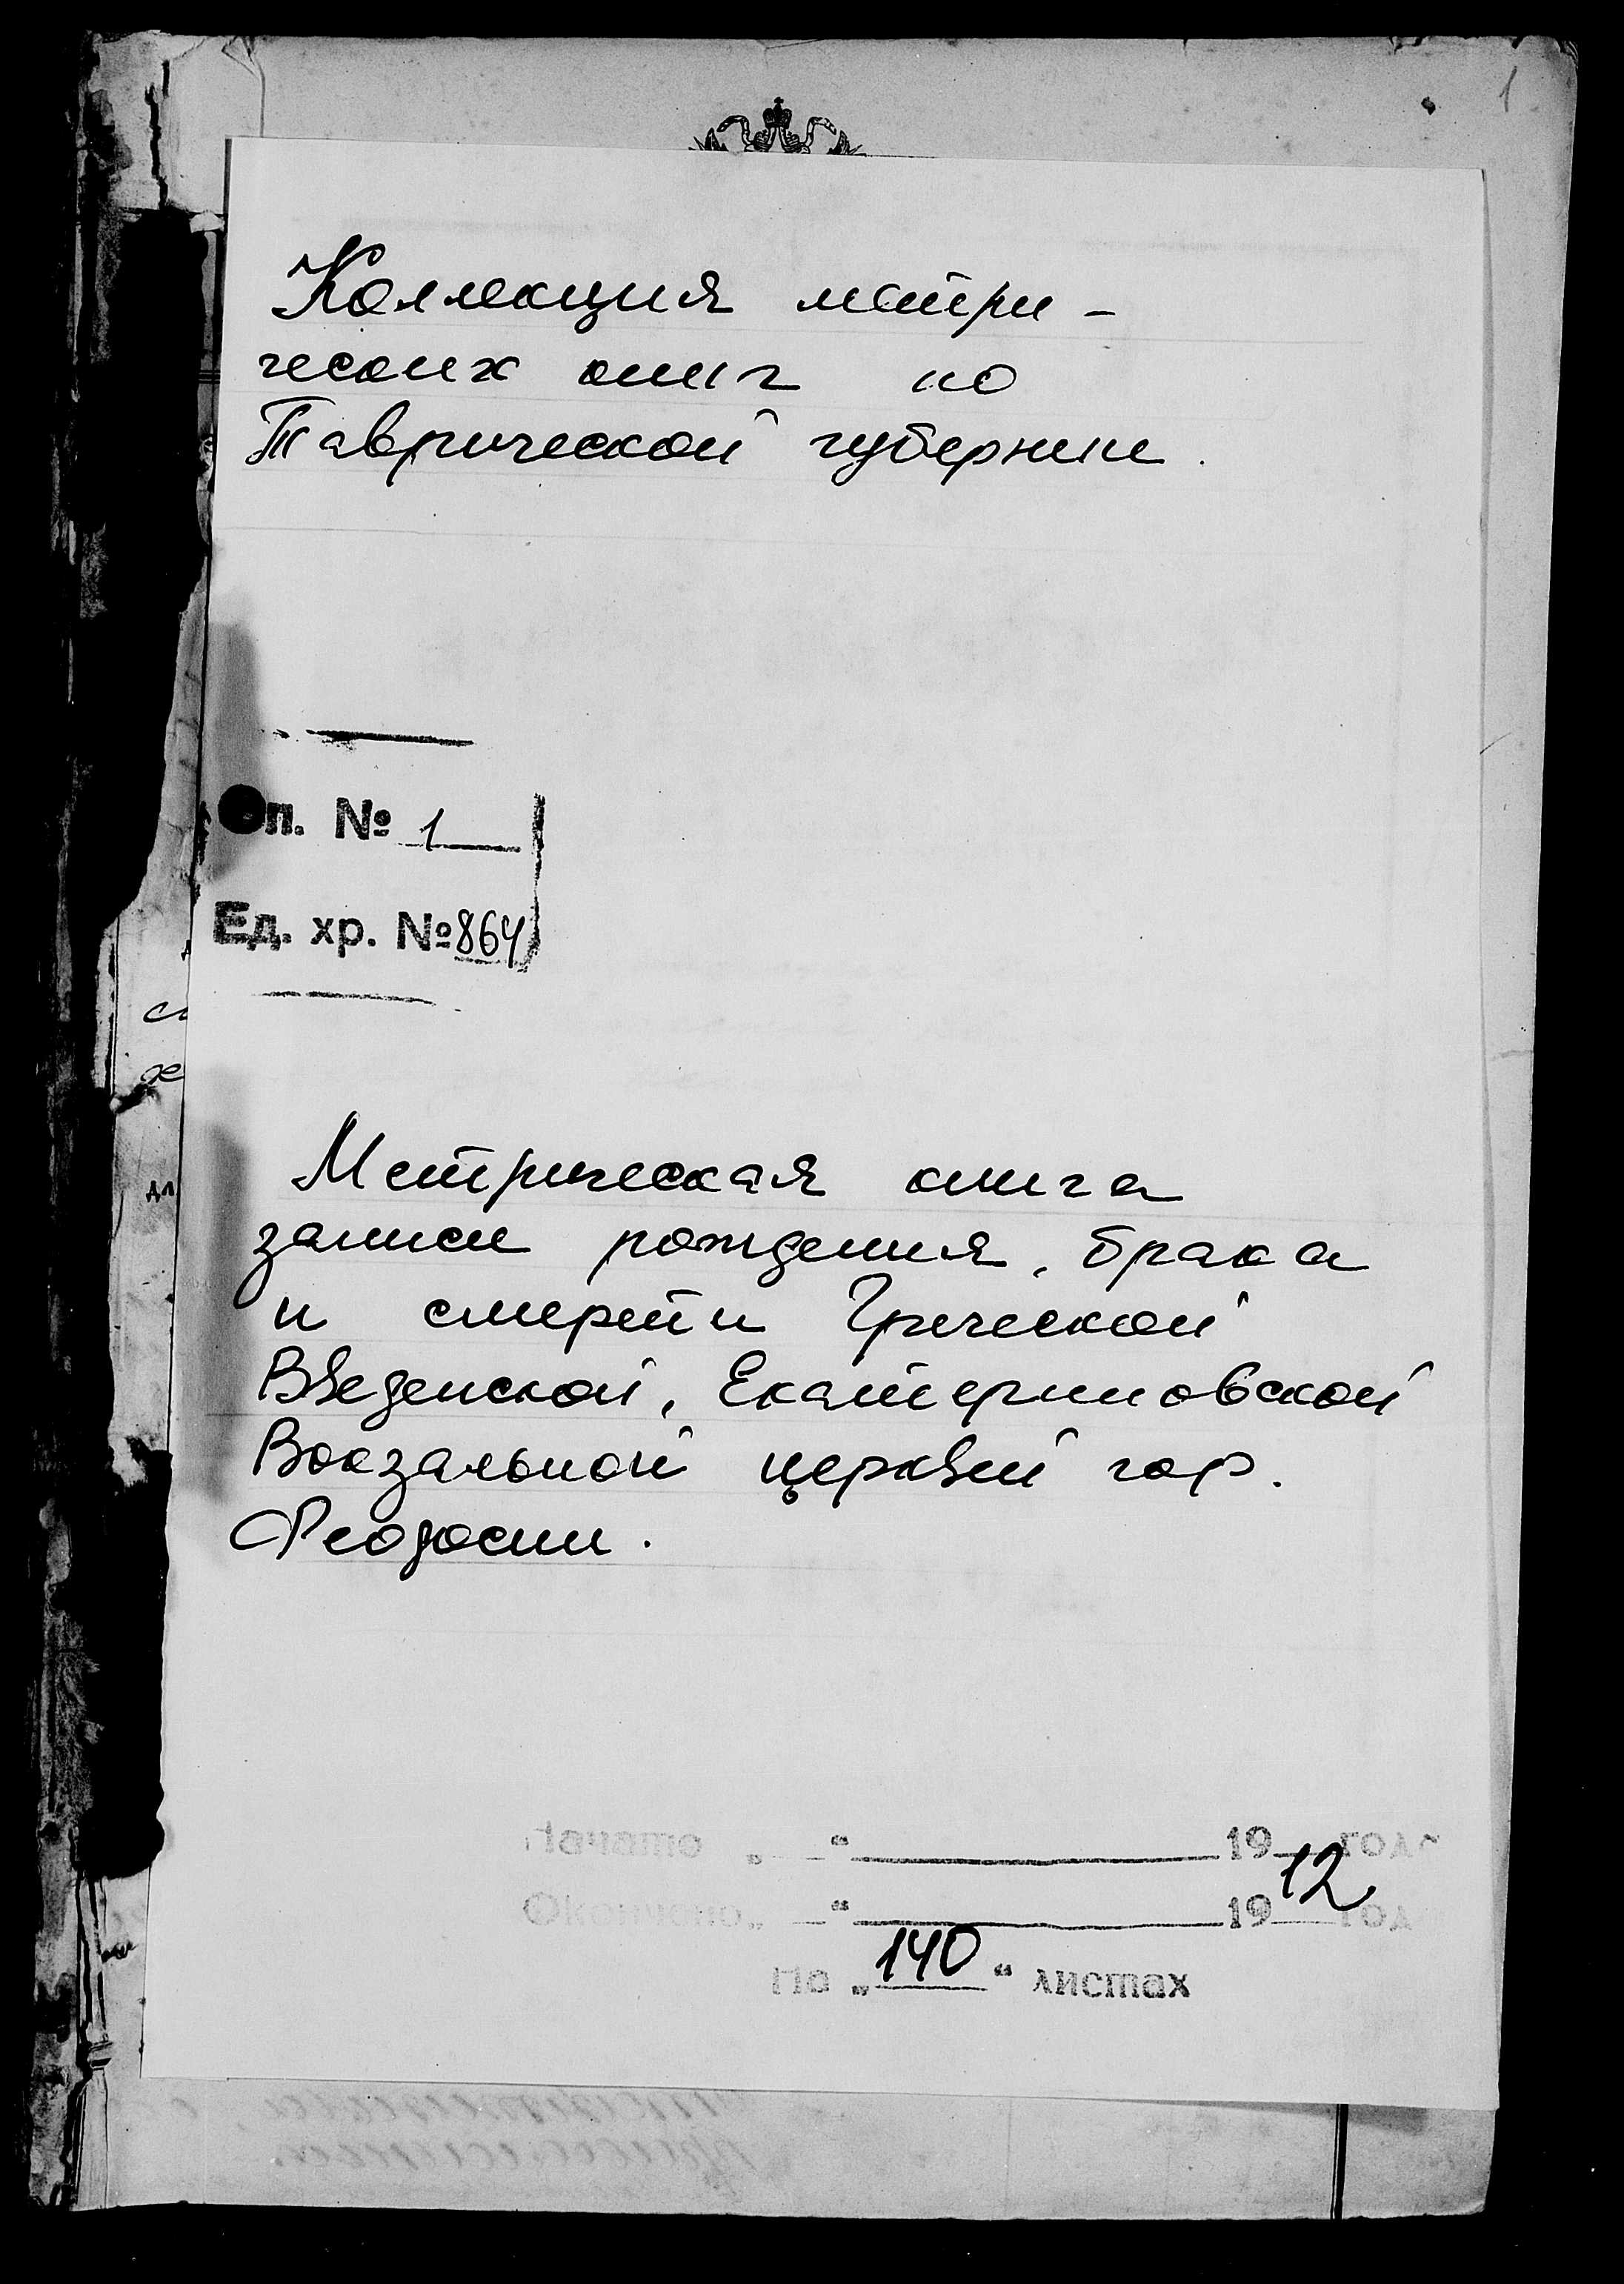 1
Коллекция метри-
ческих книг по
Таврической губернии.
Оп. № 1
Ед. хр. № 864
Метрическая книга
записи рождения, брака
и смерти Греческой
Введенской, Екатериновской
Вокзальной церквей гор.
Феодосии.
Начато „ “ 19 год
12
Окончено „ “ 19 год
На „140“ листах